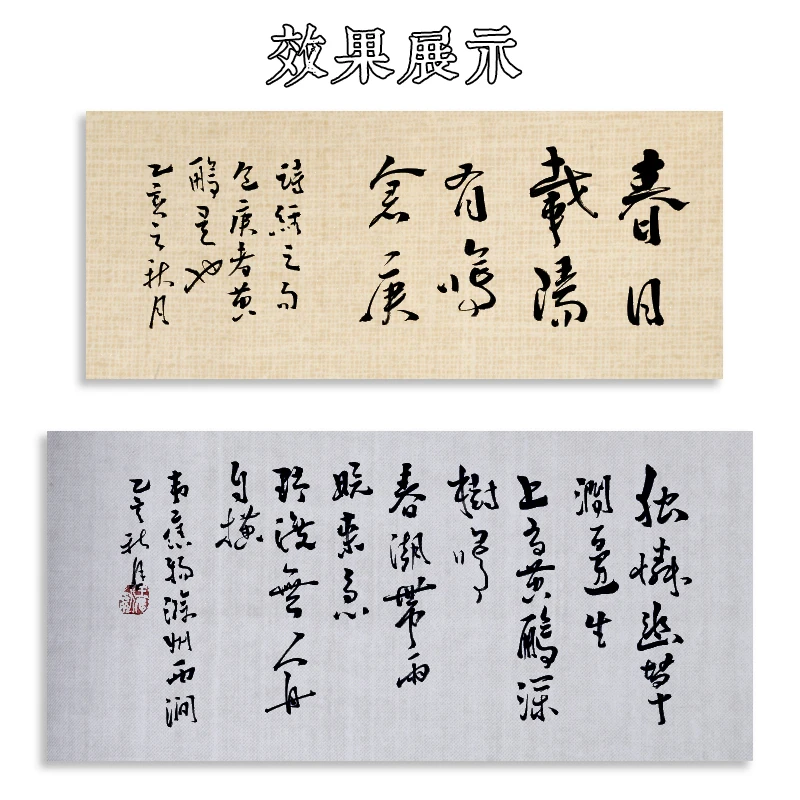 效果展示
春日
载陽
有鸣
倉庚
詩經之句
仓庚者黄
鹂是也
乙亥之秋月
独怜幽草
澗邊生
上有黄鹂深
樹鸣
春潮带雨
晚来急
野渡無人舟
自横
韦應物滁州西澗
乙亥秋月